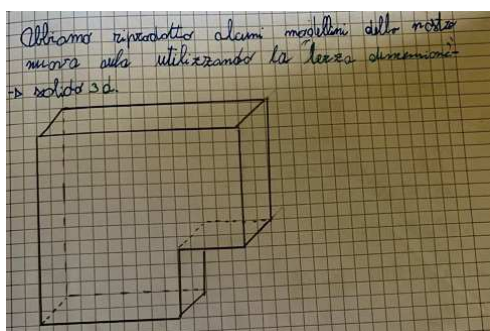 Abbiamo riprodotto alcuni modellini della nostra
nuova aula utilizzando la terza dimensione-
→ solido 3d.